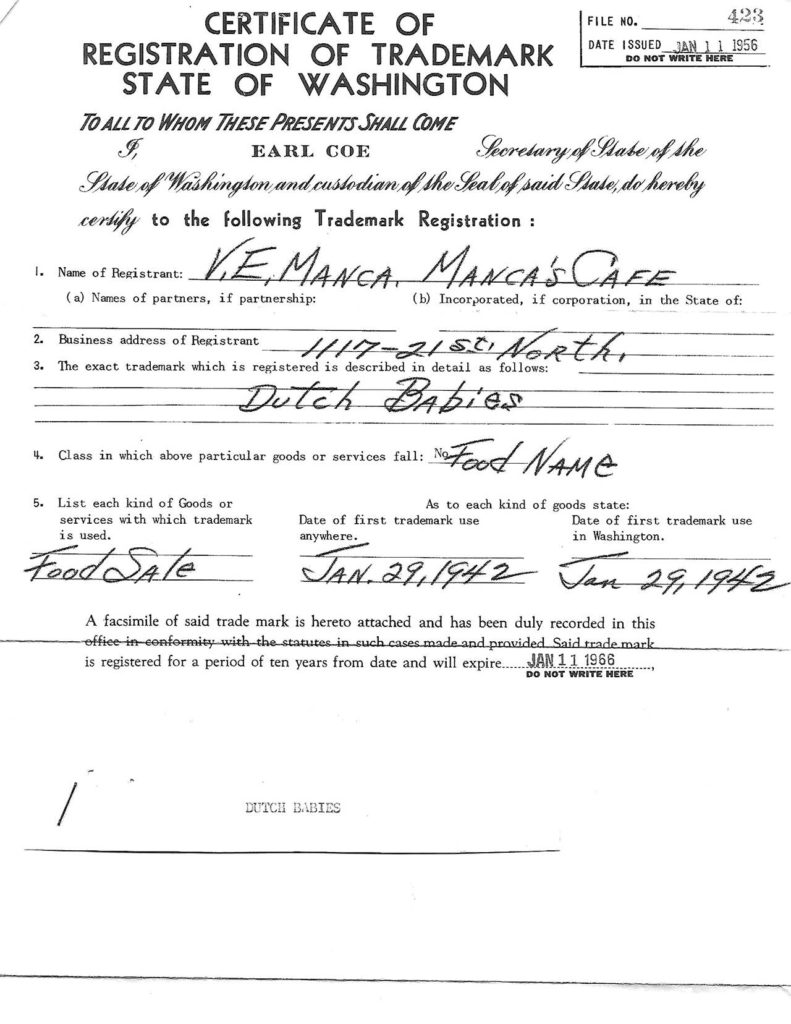 CERTIFICATE OF
REGISTRATION OF TRADEMARK
STATE OF WASHINGTON
FILE NO. 423
DATE ISSUED JAN 11 1956
DO NOT WRITE HERE
TO ALL TO WHOM THESE PRESENTS SHALL COME
I, EARL COE Secretary of State of the
State of Washington and custodian of the Seal of said State, do hereby
certify to the following Trademark Registration :
1. Name of Registrant: V.E. MANCA. MANCA'S CAFE
(a) Names of partners, if partnership: (b) Incorporated, if corporation, in the State of:
2. Business address of Registrant 1117-21st. North.
3. The exact trademark which is registered is described in detail as follows:
Dutch Babies
4. Class in which above particular goods or services fall: No. Food NAME
5. List each kind of Goods or As to each kind of goods state:
services with which trademark Date of first trademark use Date of first trademark use
is used. anywhere. in Washington.
Food SAle JAN. 29, 1942 Jan 29, 1942
A facsimile of said trade mark is hereto attached and has been duly recorded in this
office in conformity with the statutes in such cases made and provided. Said trade mark
is registered for a period of ten years from date and will expire..... JAN 11 1966 ,
DO NOT WRITE HERE
DUTCH BABIES